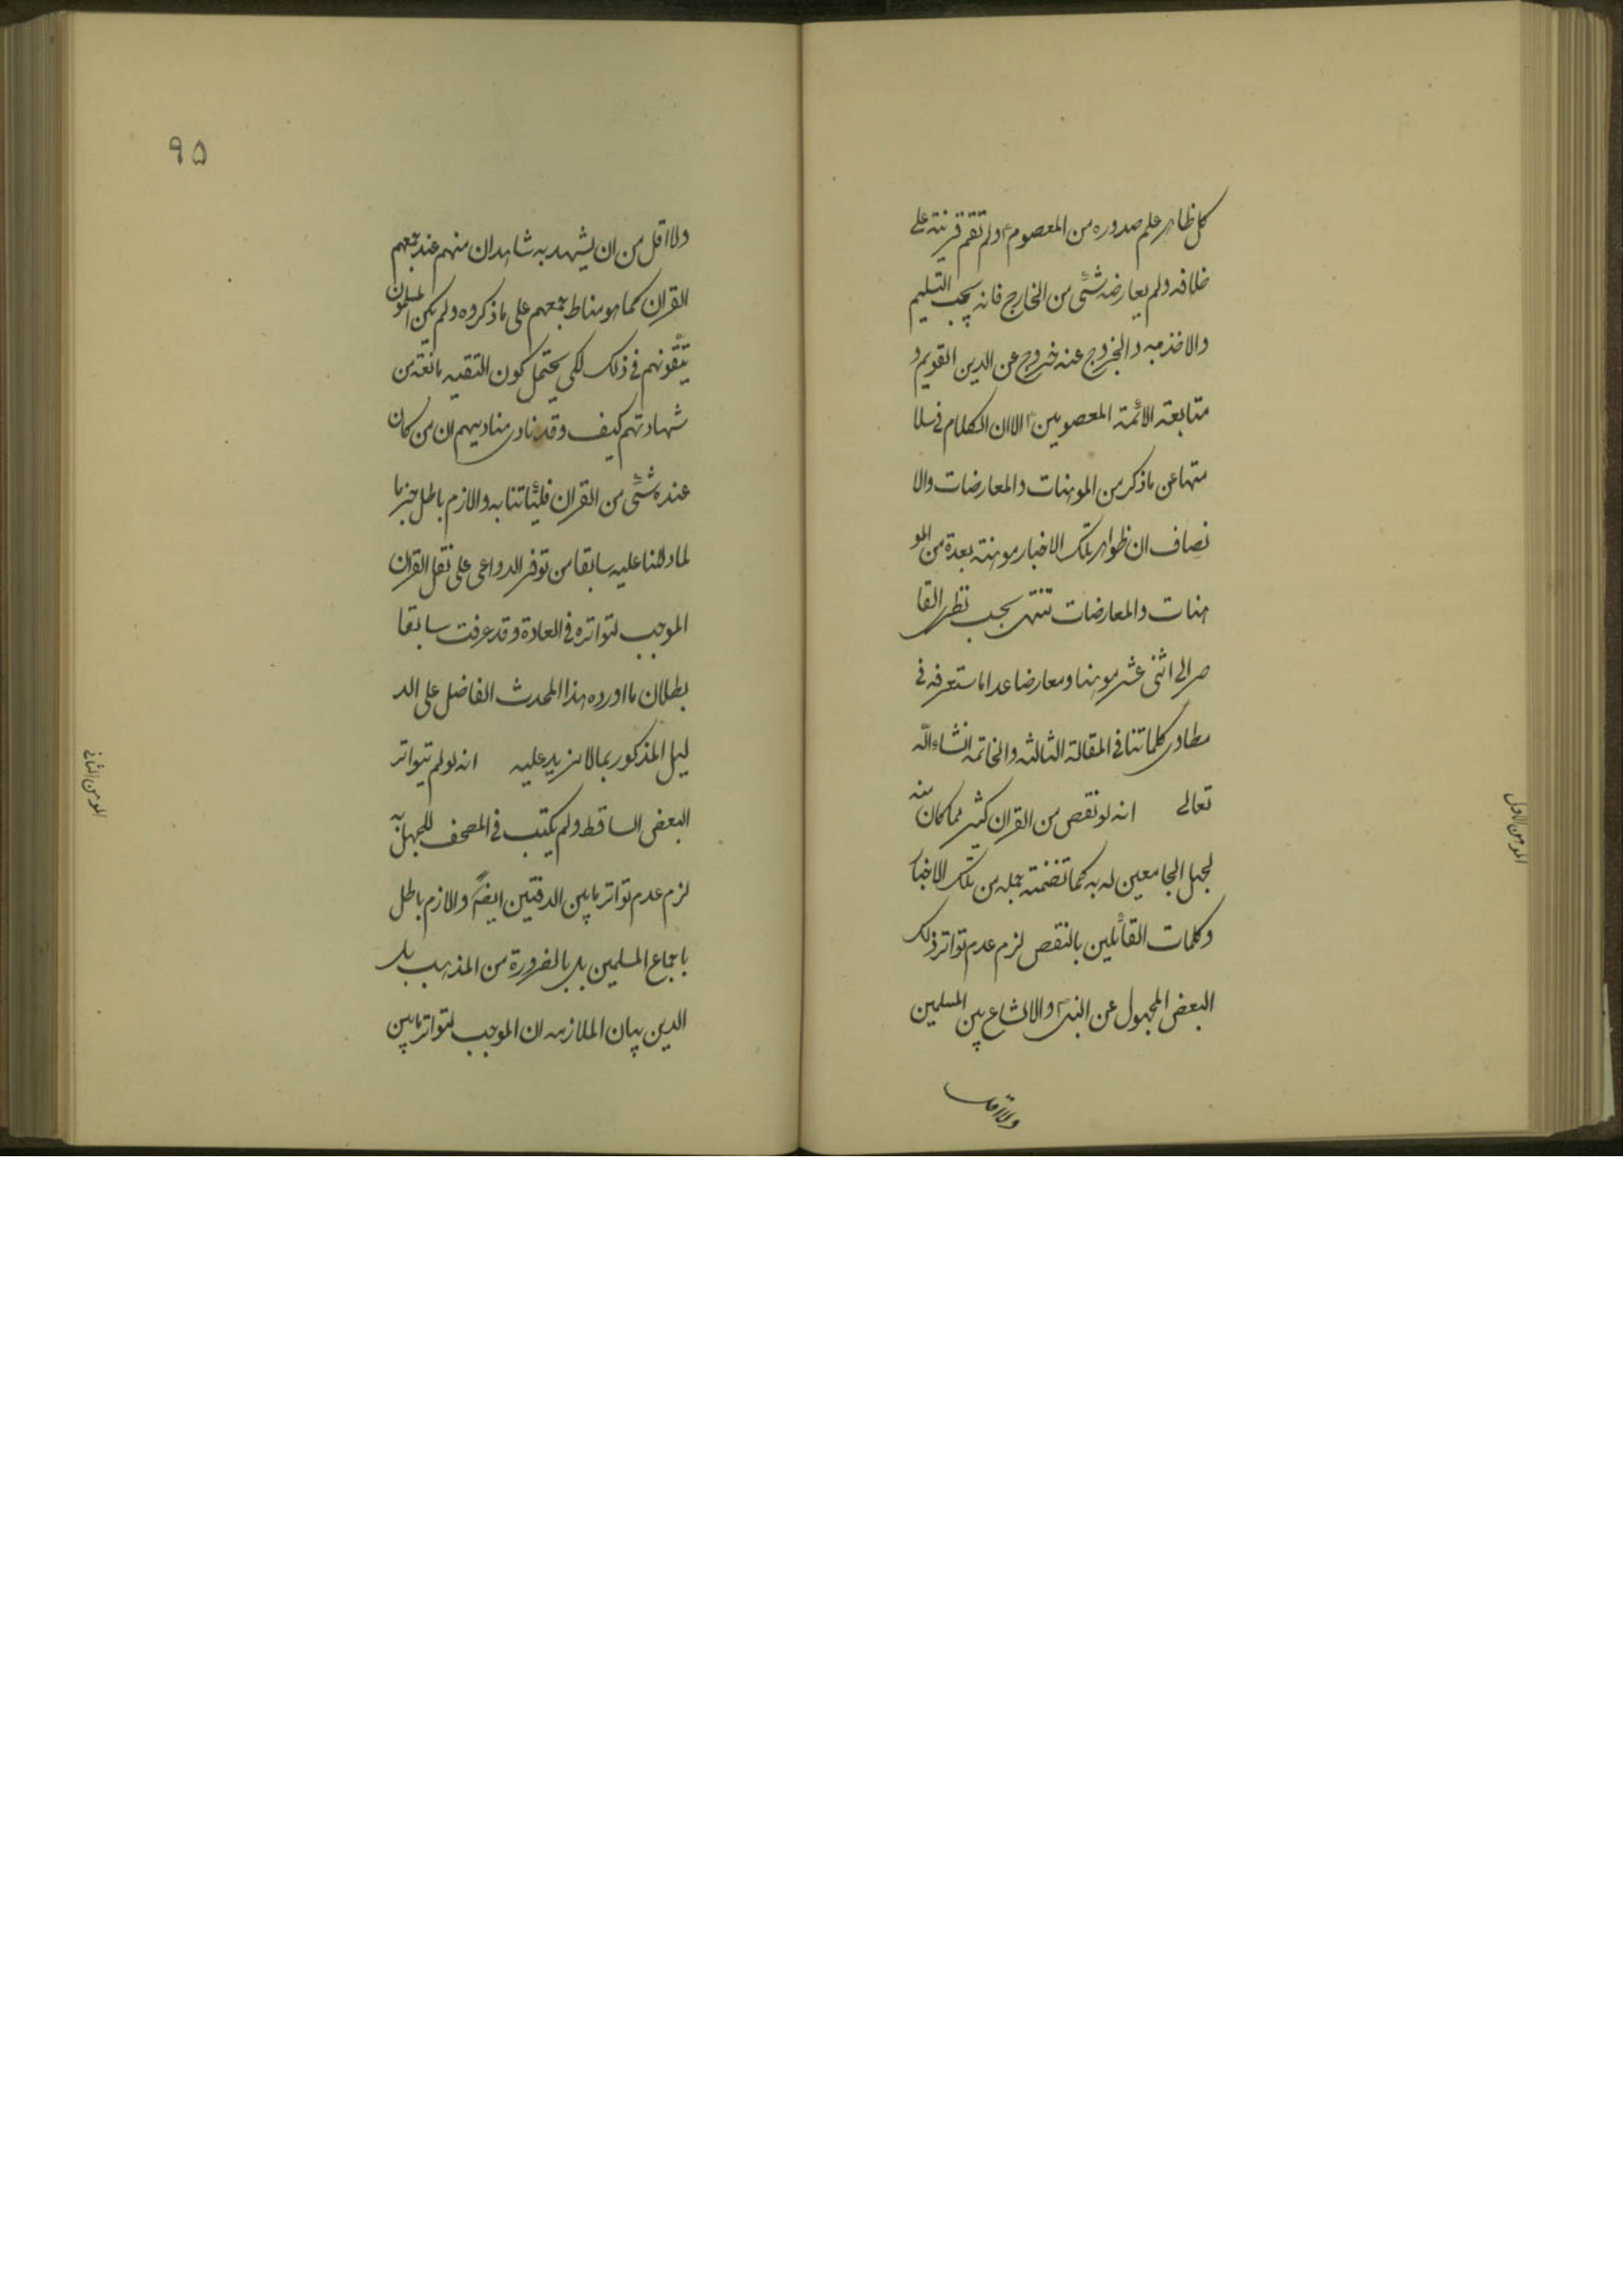 كل ظاهر علم صدوره من المعصوم ولم تقم قرينة على
خلافه ولم يعارضه شئ من الخارج فانه يجب التسليم
والاخذ به والخروج عنه خروج عن الدين القويم و
متابعة الائمة المعصومين الا ان الكلام في سلا
متها عن ما ذكر من الموهنات والمعارضات والا
نصاف ان ظواهر تلك الاخبار موهنة بعدة من المو
هنات والمعارضات تنتهى بحسب نظر القا
صر الى اثنى عشر موهنا ومعارضا عدا ما ستعرفه في
مطاوى كلماتنا في المقالة الثالثه والخاتمه انشاء الله
تعالى انه لو نقص من القران كثير مما كان منه
لجهل الجامعين له به كما تضمنته جمله من تلك الاخبا
وكلمات القائلين بالنقص لزم عدم تواتر ذلك
البعض المجهول عن النبى والا لشاع بين المسلمين
ولا اقل
الموهن الاول
۹۵
ولا اقل من ان يشهد به شاهدان منهم عند جمعهم
القران كما هو مناط جمعهم على ما ذكروه ولم يكن المسلمون
يتقونهم في ذلك لكى يحتمل كون التقيه مانعة من
شهادتهم كيف وقد نادى مناديهم ان من كان
عنده شئ من القران فليأتنا به والازم باطل جزما
لما دللنا عليه سابقا من توفر الدواعى على نقل القران
الموجب لتواتره في العادة وقد عرفت سابقا
بطلان ما اورده هذا المحدث الفاضل على الد
ليل المذكور بما لا مزيد عليه انه لو لم يتواتر
البعض الساقط ولم يكتب في المصحف للجهل به
لزم عدم تواتر ما بين الدفتين ايضا والازم باطل
باجماع المسلمين بل بالضرورة من المذهب بل
الدين بيان الملازمه ان الموجب لتواتر ما بين
الموهن الثانى